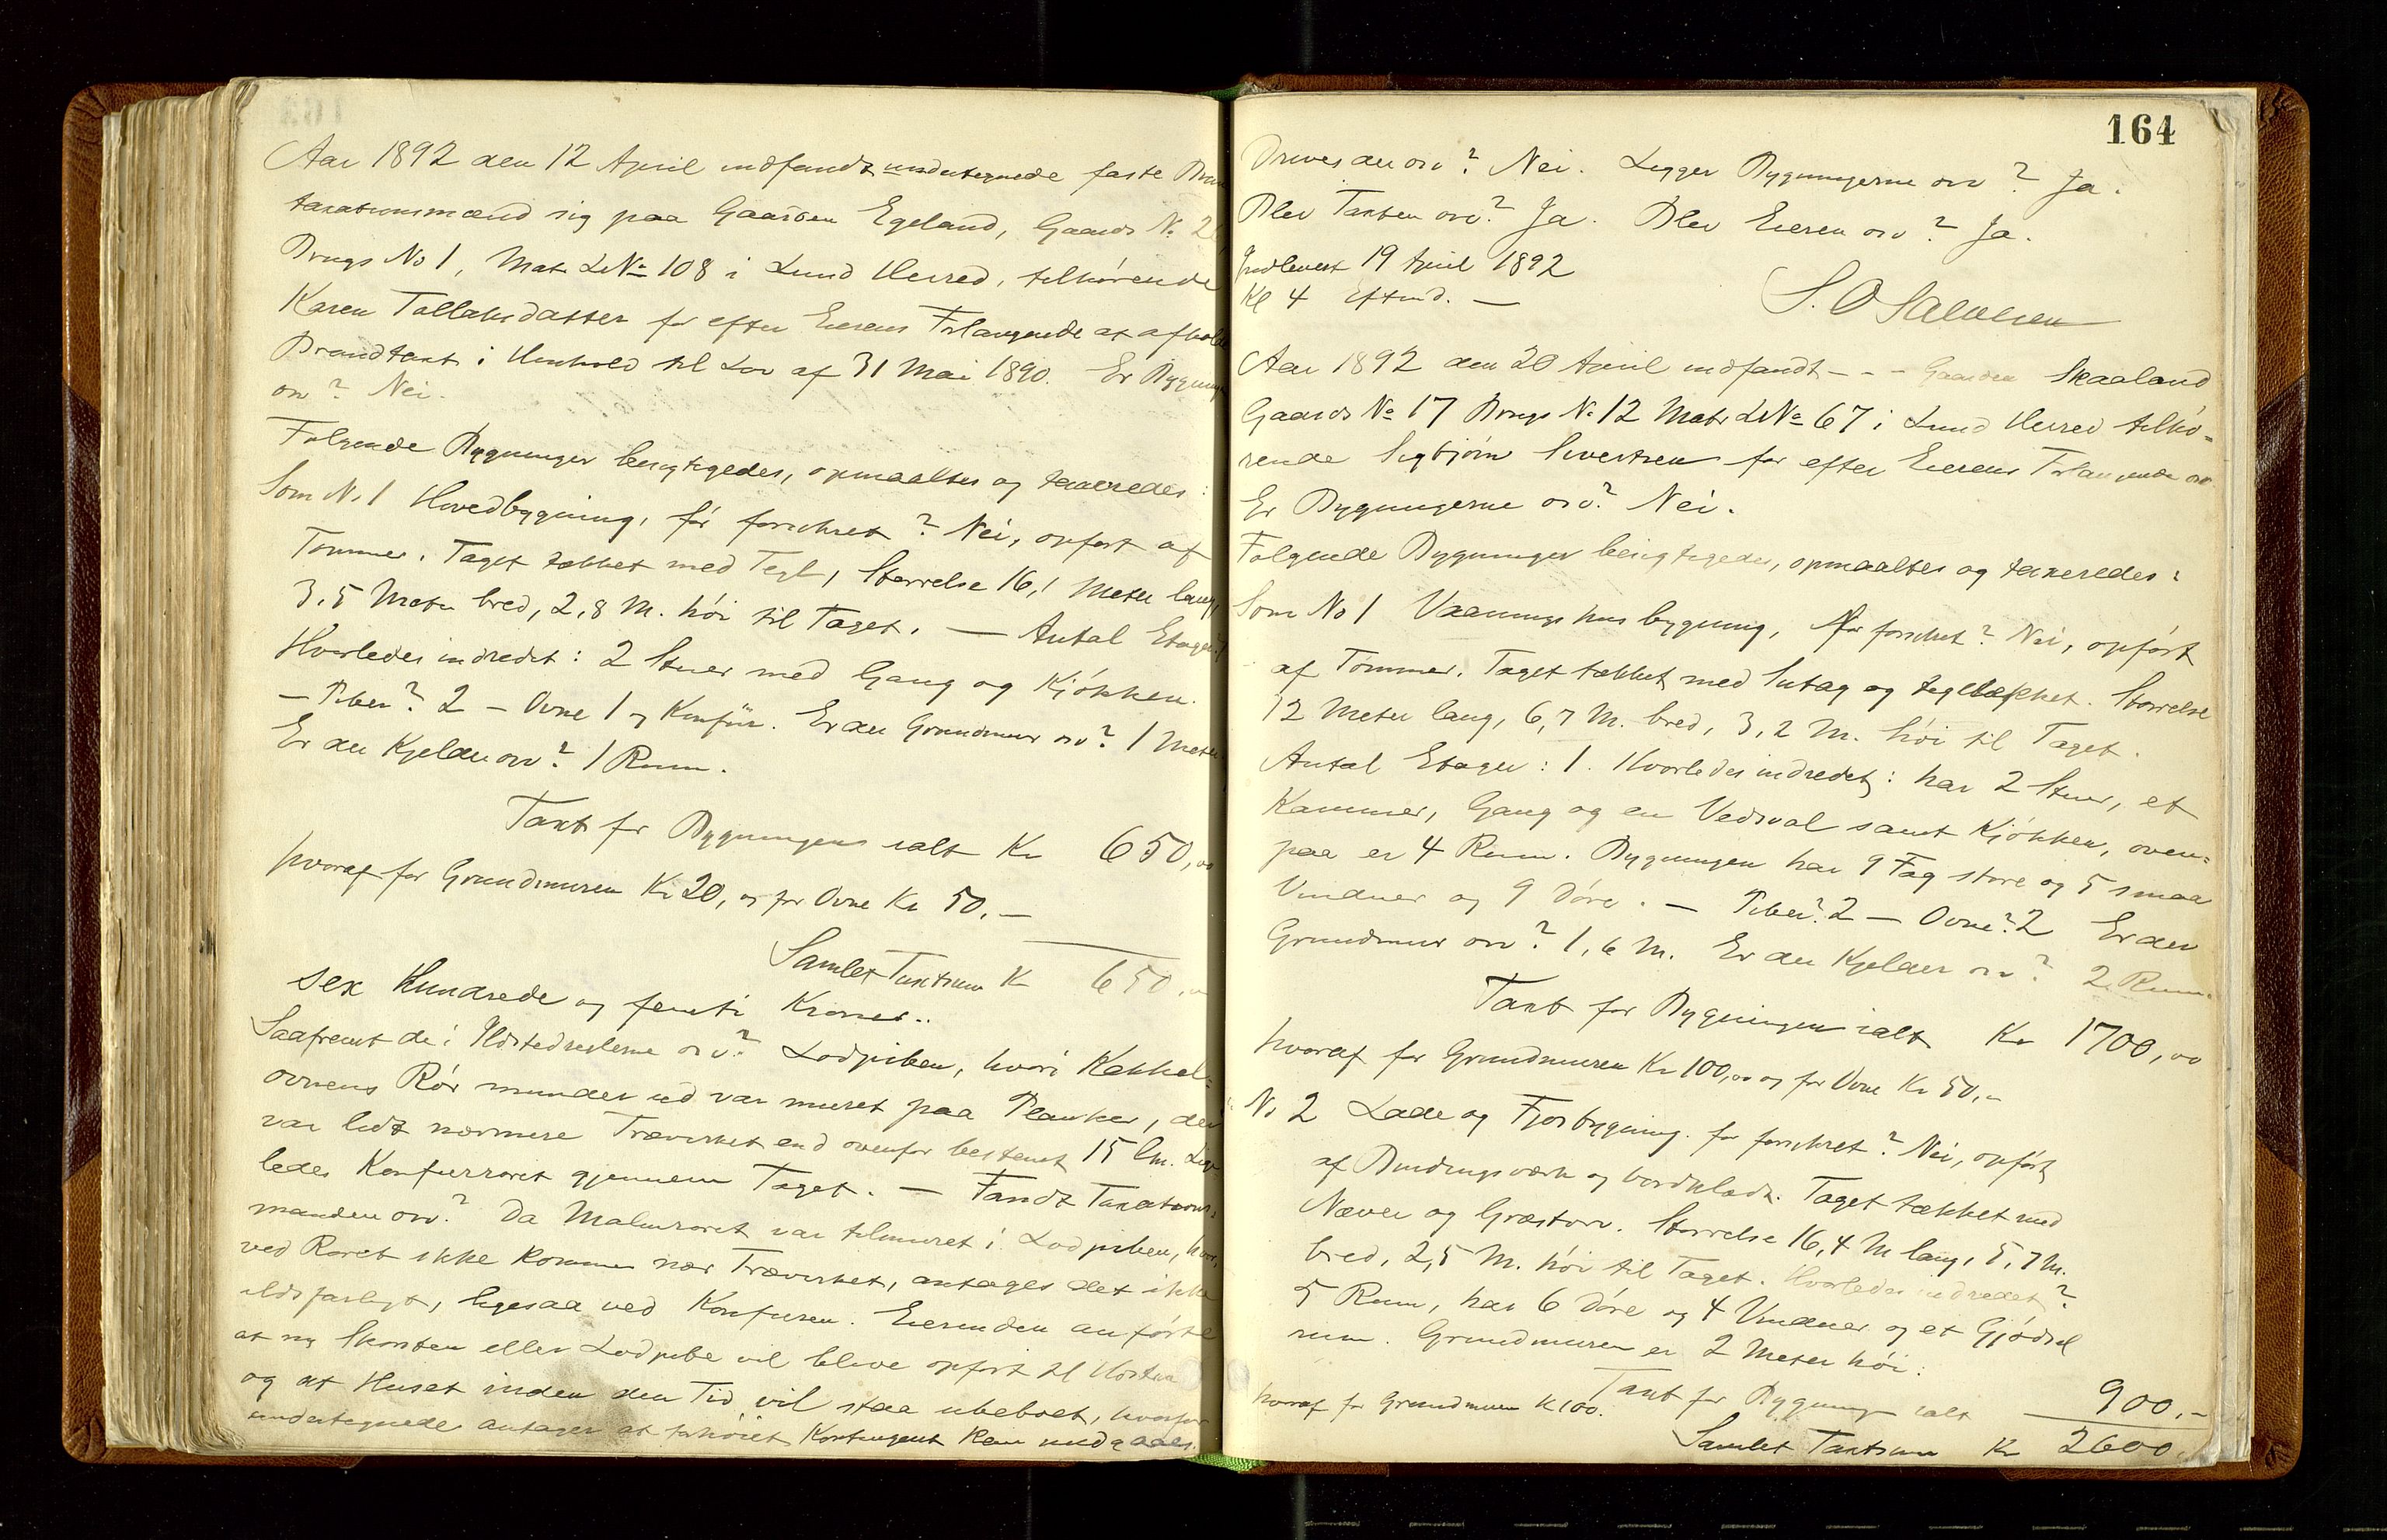 Aar 1892 den 12 April indfandt undertegnede faste
taxationsmænd sig paa Gaarden Egeland, Gaards No.
Brugs No 1, Mat. L No 108 i Lund Herred, tilhørende
Karen Tollaksdatter for efter Eierens Forlangende at afholde
Brandtaxt i Henhold til Lov af 31 Mai 1890. Er
osv? Nei.
Følgende Bygninger besigtigedes, opmaaltes og taxeredes:
Som No 1 Hovedbygning, før forsikret? Nei, opført af
Tømmer. Taget tækket med Tegl, Størrelse 16,1 Meter lang,
3,5 Meter bred, 2,8 M. høi til Taget. — Antal
Hvorledes indredet: 2 Stuer med Gang og Kjøkken.
— Piber? 2 — Ovne 1 og Komfür. Er der Grundmur osv? 1 Meter.
Er der Kjelder osv? 1 Rum.
Taxt for Bygningens ialt Kr 650,00
hvoraf for Grundmuren Kr 20, og for Ovne Kr 50.—
Samlet Taxtsum Kr 650,00
sex Hundrede og femti Kroner..
Saafremt de i Ildstedreglerne osv? Lodpiben, hvori Kakkel=
ovnens Rør munder ud var muret paa Planker, der
var lidt nærmere Træverket end ovenfor bestemt 15 Cm.
ledes Komfurrøret gjennem Taget. — Fandt Taxations=
manden osv? Da Malmrøret var tilmuret i Lodpiben,
ved Røret ikke kommer nær Træverket, antages det ikke
ildsfarligt, ligesaa ved Komfuren. Eierinden anførte
at ny Skorsten eller Lodpibe vil blive opført til Høsten
og at Huset inden den Tid vil staa ubeboet, hvorfor
undertegnede antager at forhøiet Kontingent kan undgaaes.
164
Drives der osv? Nei. Ligger Bygningerne osv? Ja.
Blev Taxten osv? Ja. Blev Eieren osv? Ja.
Indleveret 19 April 1892
Kl 4 Eftmd. —
S. O.
Aar 1892 den 20 April indfandt - - - Gaarden Skaaland
Gaards No 17 Brugs No 12 Matr L No 67 i Lund Herred tilhø=
rende Sigbjørn Sivertsen for efter Eierens Forlangende osv
Er Bygningerne osv? Nei.
Følgende Bygninger besigtigedes, opmaaltes og taxeredes:
Som No 1 Vaaningshusbygning, før forsikret? Nei, opført
af Tømmer. Taget tækket med Sutag og tegltækket. Størrelse
12 Meter lang, 6,7 M. bred, 3,2 M. høi til Taget.
Antal Etager: 1. Hvorledes indredet: har 2 Stuer, et
Kammer, Gang og en Vedsval samt Kjøkken, oven=
paa er 4 Rum. Bygningen har 9 Fag store og 5 smaa
Vinduer og 9 Døre. — Piber? 2 — Ovne? 2 Er der
Grundmur osv? 1,6 M. Er der Kjelder osv? 2 Rum.
Taxt for Bygningen ialt Kr 1700,00
hvoraf for Grundmuren Kr 100,00 og for Ovne Kr 50.—
No 2 Lade og Fjøsbygning. før forsikret? Nei, opført
af Bindingsværk og bordklædt. Taget tækket med
Næver og Græstorv. Størrelse 16,4 M lang, 5,7 M.
bred, 2,5 M. høi til Taget. Hvorledes indredet?
5 Rum, har 6 Døre og 4 Vinduer og et Gjødsel
rum. Grundmuren er 2 Meter høi.
Taxt for Bygningen ialt 900.—
hvoraf for Grundmuren Kr 100.
Samlet Taxtsum Kr 2600